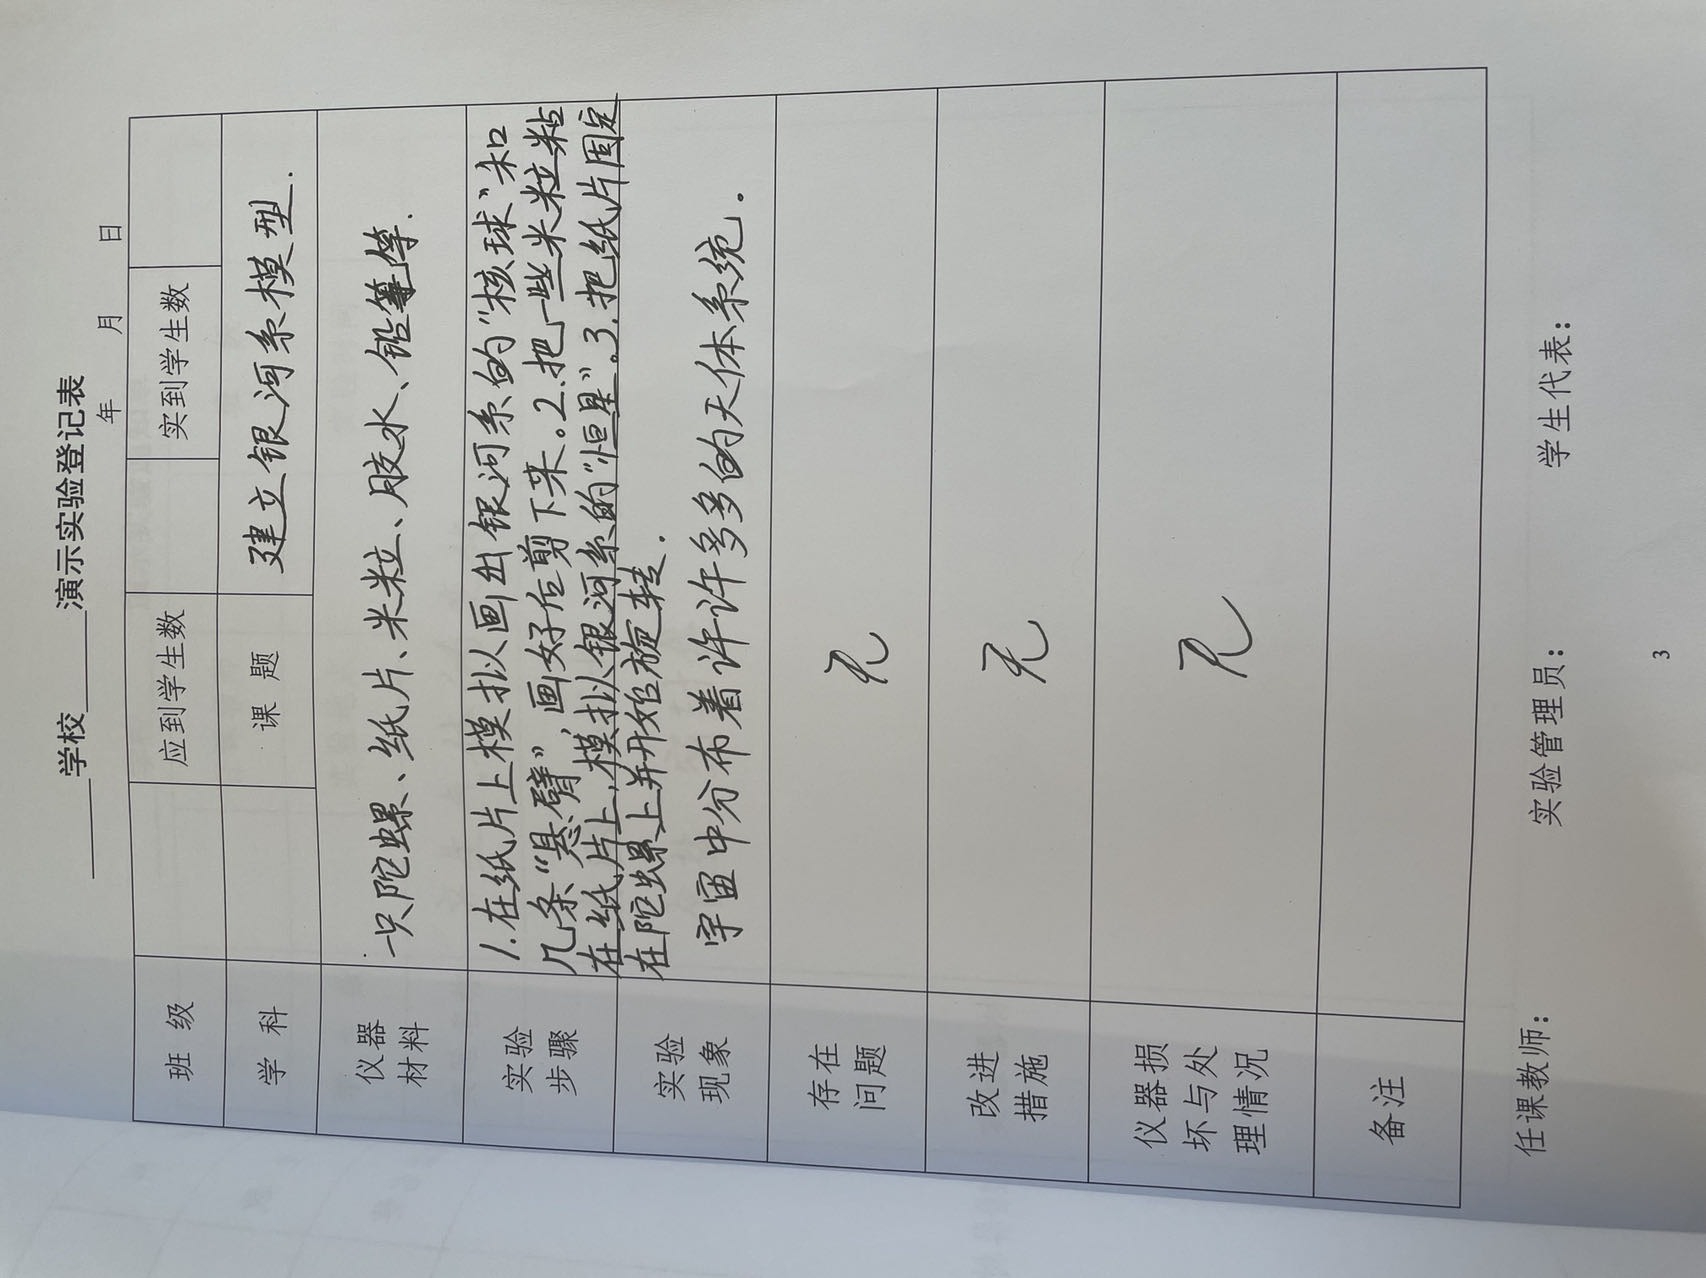 ______学校______演示实验登记表
年 月 日
班 级 应到学生数 实到学生数
学 科 课 题 建立银河系模型.
仪器材料 一只陀螺、纸片、米粒、胶水、铅笔等.
实验步骤 1.在纸片上模拟画出银河系的“核球”和
几条“悬臂”,画好后剪下来。2.把一些米粒粘
在纸片上,模拟银河系的“恒星”。3.把纸片固定
在陀螺上并开始旋转.
实验现象 宇宙中分布着许许多多的天体系统.
存在问题 无
改进措施 无
仪器损坏与处理情况 无
备注
任课教师: 实验管理员: 学生代表:
3